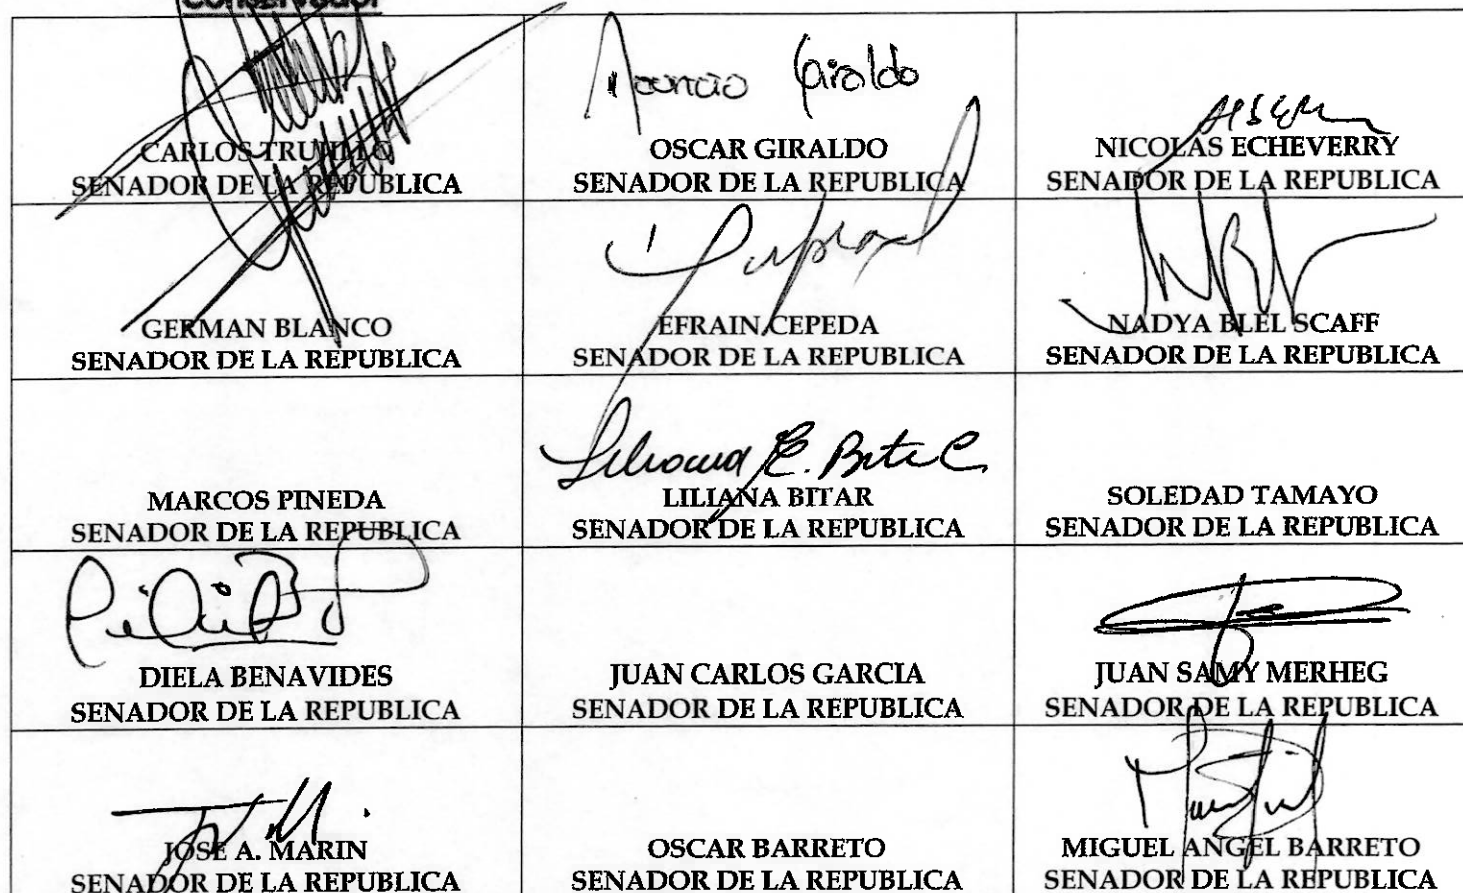 Conservador
Mauricio Giraldo
CARLOS TRUJILLO
SENADOR DE LA REPUBLICA
OSCAR GIRALDO
SENADOR DE LA REPUBLICA
NICOLAS ECHEVERRY
SENADOR DE LA REPUBLICA
GERMAN BLANCO
SENADOR DE LA REPUBLICA
EFRAIN CEPEDA
SENADOR DE LA REPUBLICA
NADYA BLEL SCAFF
SENADOR DE LA REPUBLICA
MARCOS PINEDA
SENADOR DE LA REPUBLICA
Liliana E. Bitar C
LILIANA BITAR
SENADOR DE LA REPUBLICA
SOLEDAD TAMAYO
SENADOR DE LA REPUBLICA
DIELA BENAVIDES
SENADOR DE LA REPUBLICA
JUAN CARLOS GARCIA
SENADOR DE LA REPUBLICA
JUAN SAMY MERHEG
SENADOR DE LA REPUBLICA
JOSE A. MARIN
SENADOR DE LA REPUBLICA
OSCAR BARRETO
SENADOR DE LA REPUBLICA
MIGUEL ANGEL BARRETO
SENADOR DE LA REPUBLICA